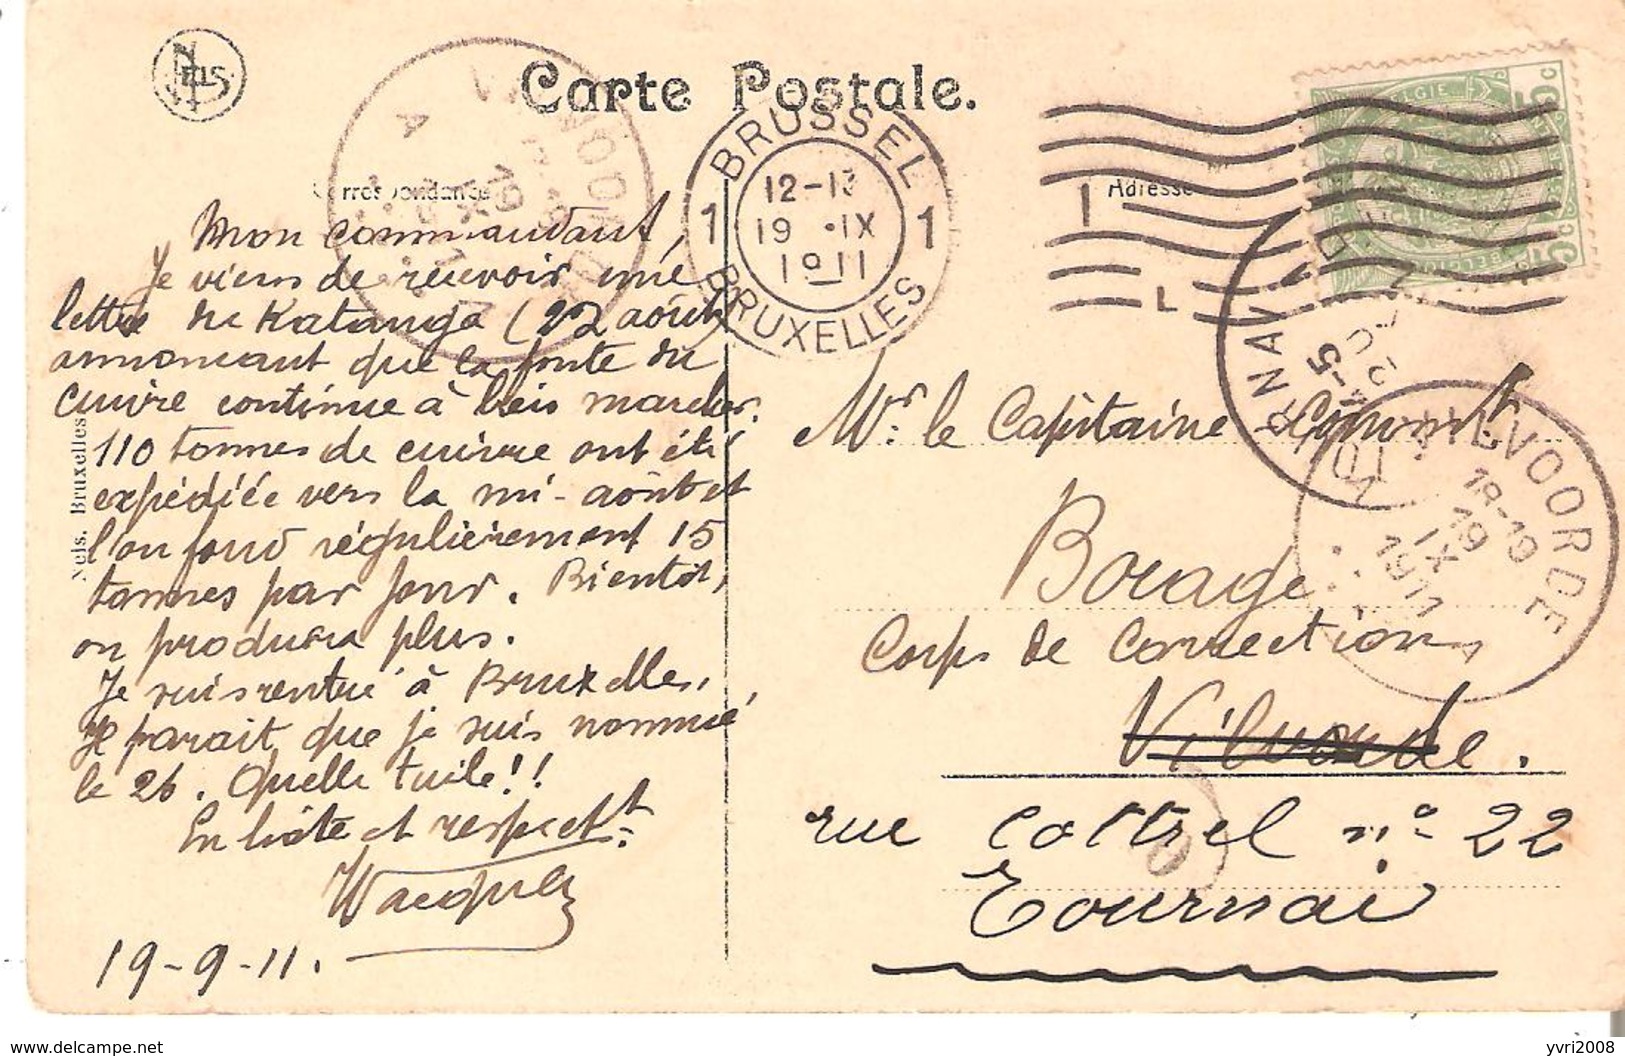 NELS
Carte Postale.
Correspondance
Adresse
BRUSSEL
12-13
19 · IX
1911
1
1
BRUXELLES
VILVOORDE
18-19
19
IX
1911
A
BELGIE
5 C
5 C
Mon commandant,
Je viens de recevoir une
lettre du Katanga (22 août)
annoncant que la fonte du
cuivre continue à bien marcher.
110 tonnes de cuivre ont été
expédiée vers la mi-août et
l'on fond régulièrement 15
tonnes par jour. Bientôt,
on produira plus.
Je suis rentré à Bruxelles,
Il parait que je suis nommé
le 26. Quelle tuile!!
En hâte et respectt.
19-9-11.
Mr. le Capitaine
Corps de Correction
Vilvorde.
rue Cottrel no 22
Tournai
Nels. Bruxelles
yvri2008